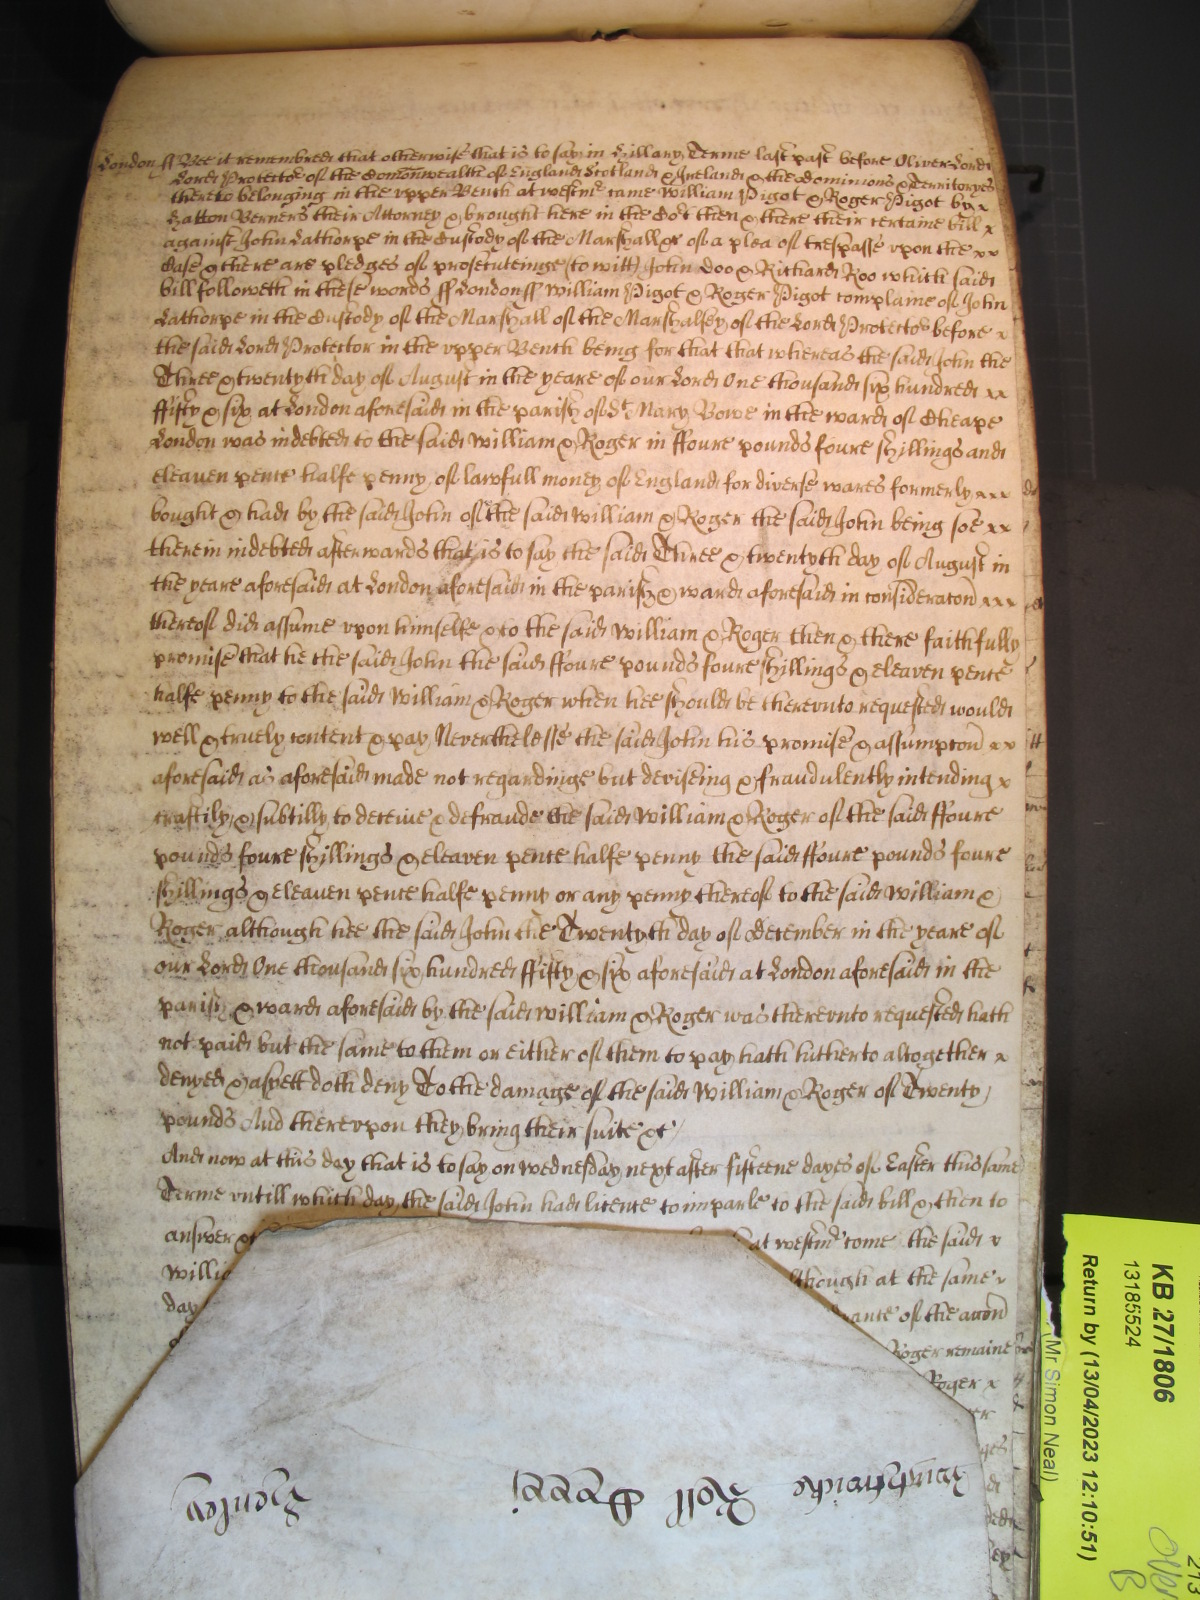 London ss Bee it remembred that otherwise that is to say in Hillary Terme last past before Oliver Lord
Lord Protector of the Comonwealth of England Scotland & Ireland & the dominions & Territoryes
thereto belonging in the vpper Bench at westmr came William Pigot & Roger Pigot by x
Hatton Berners their Attorney & brought here in the Cort then & there their certaine bill x
against John Lathorpe in the Custody of the Marshall &c of a plea of trespasse vpon the xx
Case & there are pledges of prosecuteinge (to witt) John Doo & Richard Roo which said
bill followeth in these words ss London ss William Pigot & Roger Pigot complaine of John
Lathorpe in the Custody of the Marshall of the Marshalsey of the Lord Protector before x
the said Lord Protector in the vpper Bench being for that that whereas the said John the
Three & twentyth day of August in the yeare of our Lord One thousand six hundred xx
ffifty & six at London aforesaid in the parish of St Mary Bowe in the ward of Cheape
London was indebted to the said William & Roger in ffoure pounds foure shillings and
eleaven pence halfe penny of lawfull money of England for diverse wares formerly xxx
bought & had by the said John of the said William & Roger the said John being soe xx
therein indebted afterwards that is to say the said Three & twentyth day of August in
the yeare aforesaid at London aforesaid in the parish & ward aforesaid in consideracon xxx
thereof did assume vpon himselfe & to the said William & Roger then & there faithfully
promise that he the said John the said ffoure pounds foure shillings & eleaven pence
halfe penny to the said William & Roger when hee should be therevnto requested would
well & truely content & pay Neverthelesse the said John his promise & assumpcon xx
aforesaid as aforesaid made not regardinge but deviseing & fraudulently intending x
craftily & subtilly to deceiue & defraude the said William & Roger of the said ffoure
pounds foure shillings & eleaven pence halfe penny the said ffoure pounds foure
shillings & eleaven pence halfe penny or any penny thereof to the said William &
Roger although hee the said John the Twentyth day of december in the yeare of
our Lord One thousand six hundred ffifty & six aforesaid at London aforesaid in the
parish & ward aforesaid by the said William & Roger was therevnto requested hath
not paid but the same to them or either of them to pay hath hitherto altogether x
denyed & as yett doth deny To the damage of the said William & Roger of Twenty
pounds And therevpon they bring their suite &c
And now at this day that is to say on wednesday next after fifteene dayes of Easter this same
Terme vntill which day the said John had licence to imparle to the said bill & then to
answer &c at westmr come the said x
Willia though at the same x
day of the accon
Roger remaine
Roger x
Roll
KB 27/1806
13185524
Return by (13/04/2023 12:10:51)
(Mr Simon Neal)
213